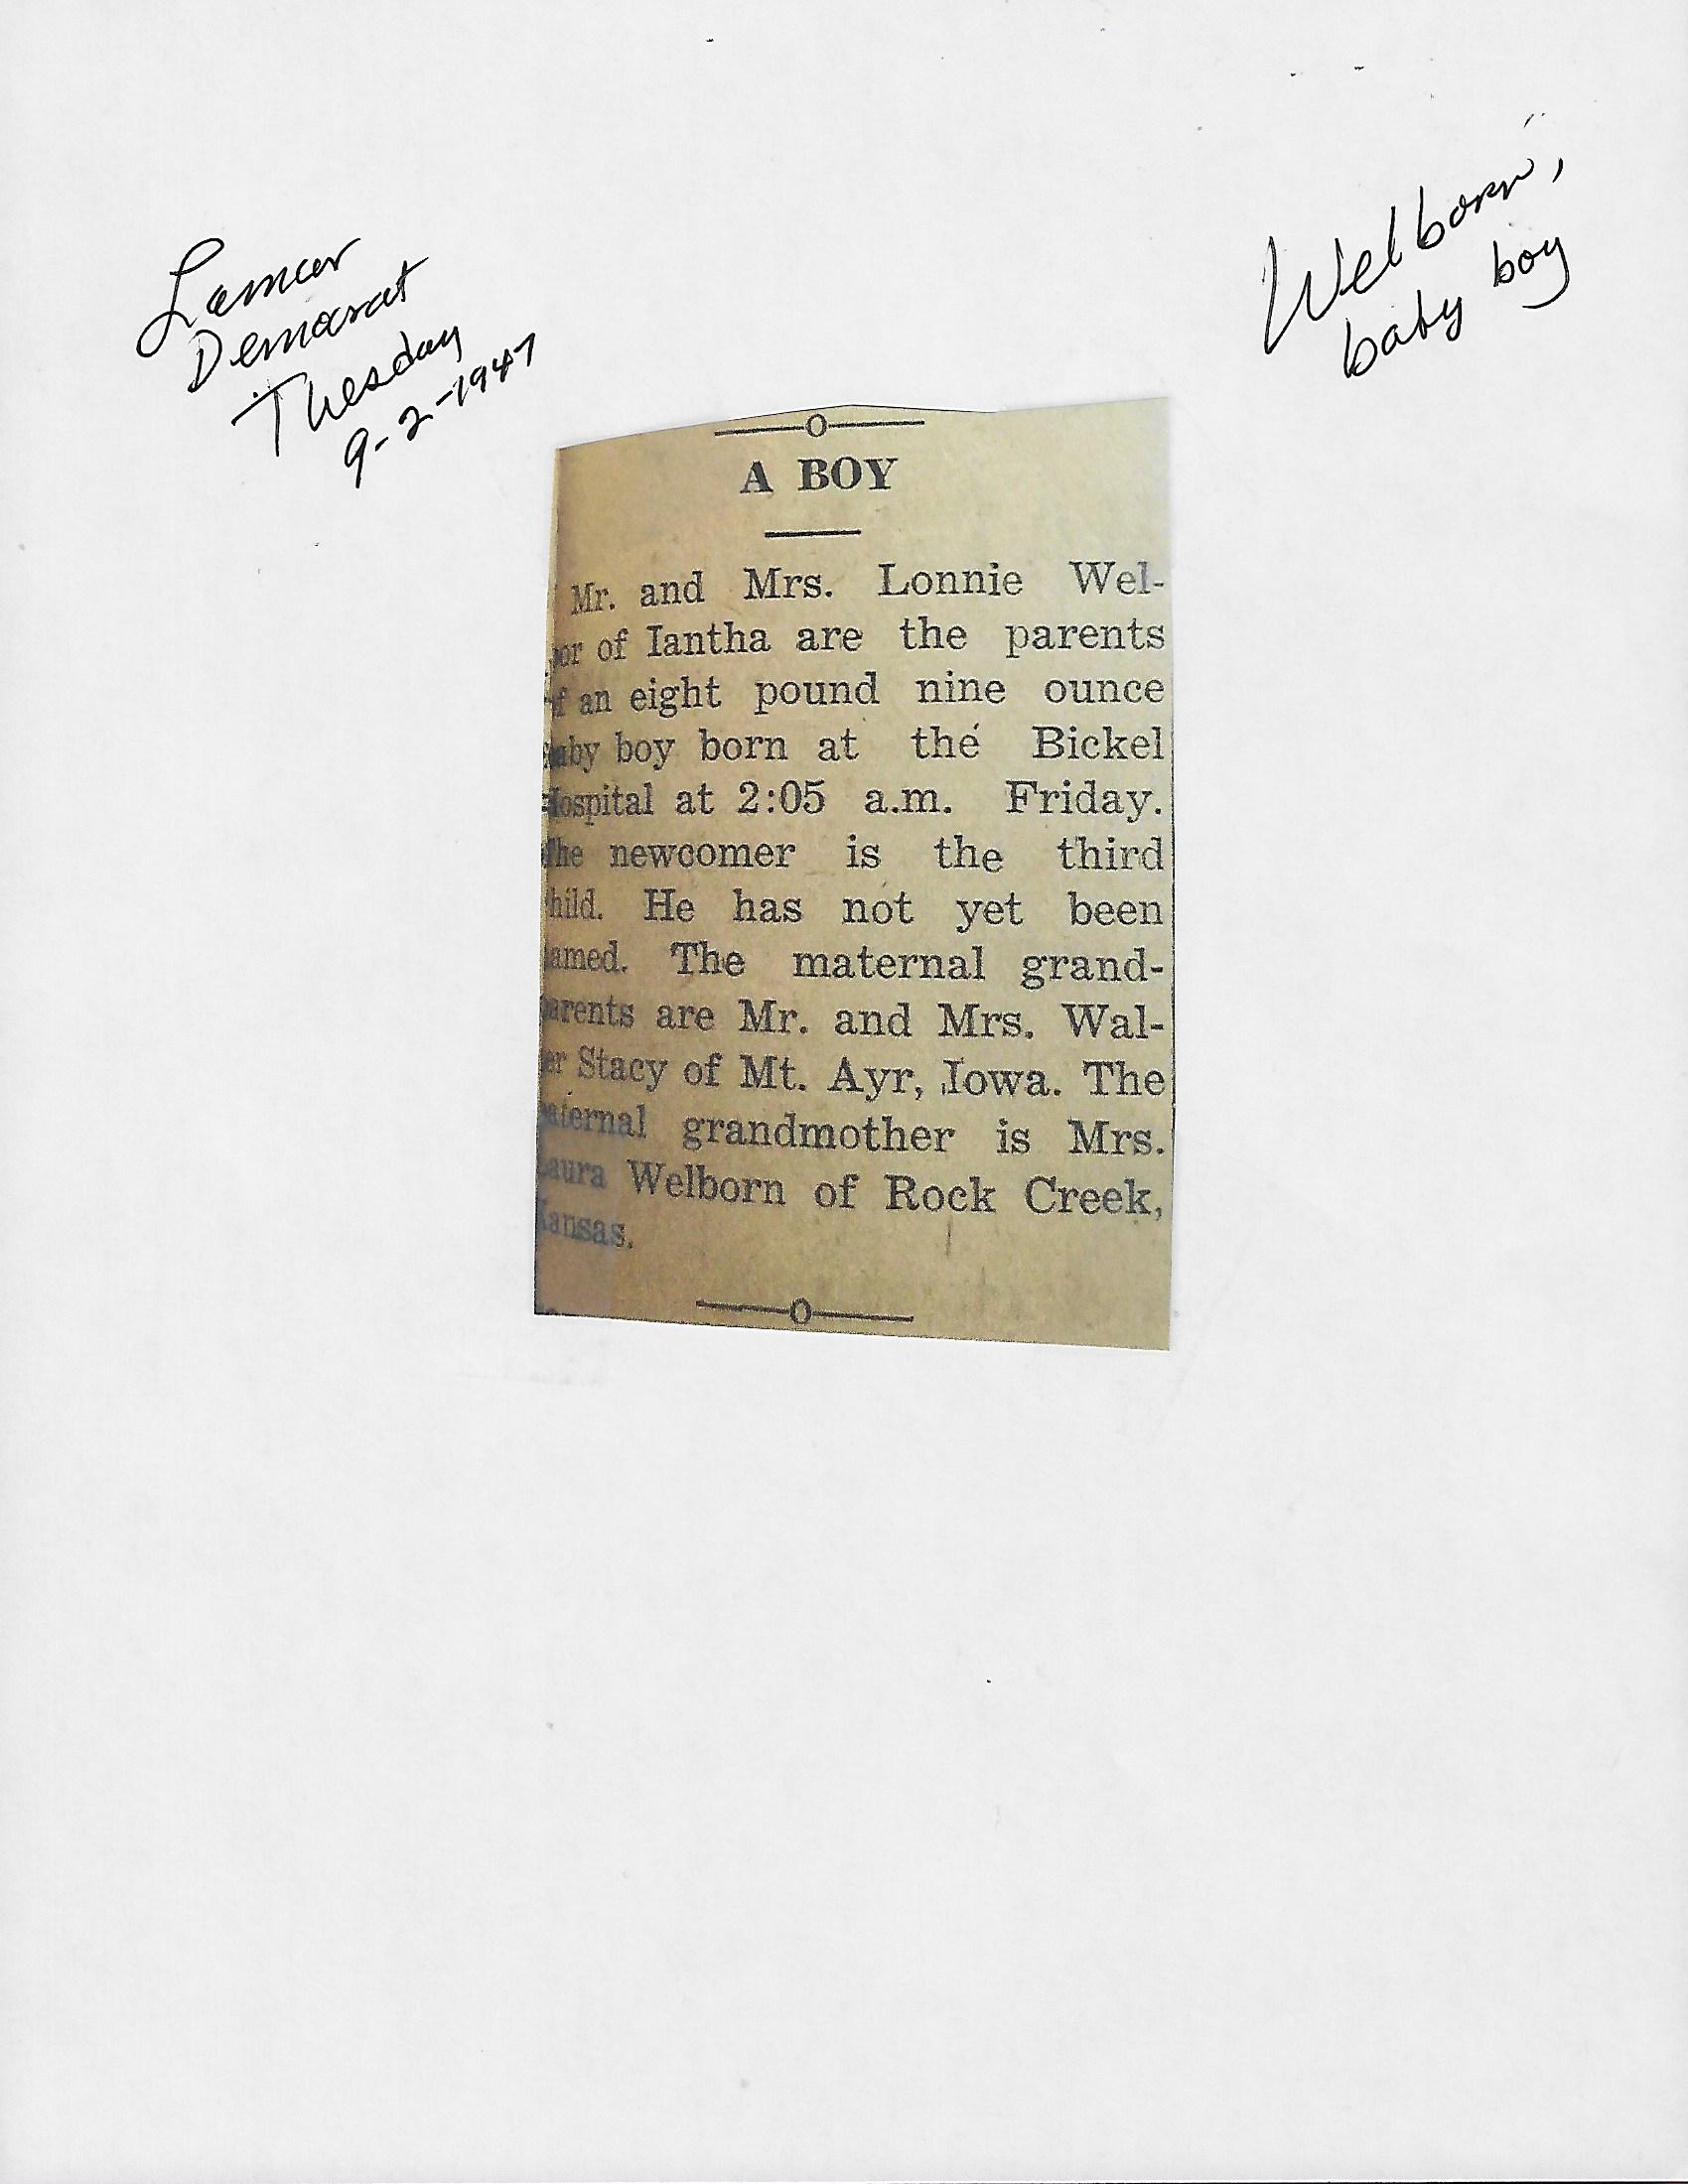 Lamar
Democrat
Tuesday
9-2-1947
Welborn,
baby boy
A BOY
Mr. and Mrs. Lonnie Wel-
bor of Iantha are the parents
of an eight pound nine ounce
baby boy born at the Bickel
Hospital at 2:05 a.m. Friday.
The newcomer is the third
child. He has not yet been
named. The maternal grand-
parents are Mr. and Mrs. Wal-
ter Stacy of Mt. Ayr, Iowa. The
paternal grandmother is Mrs.
Laura Welborn of Rock Creek,
Kansas.